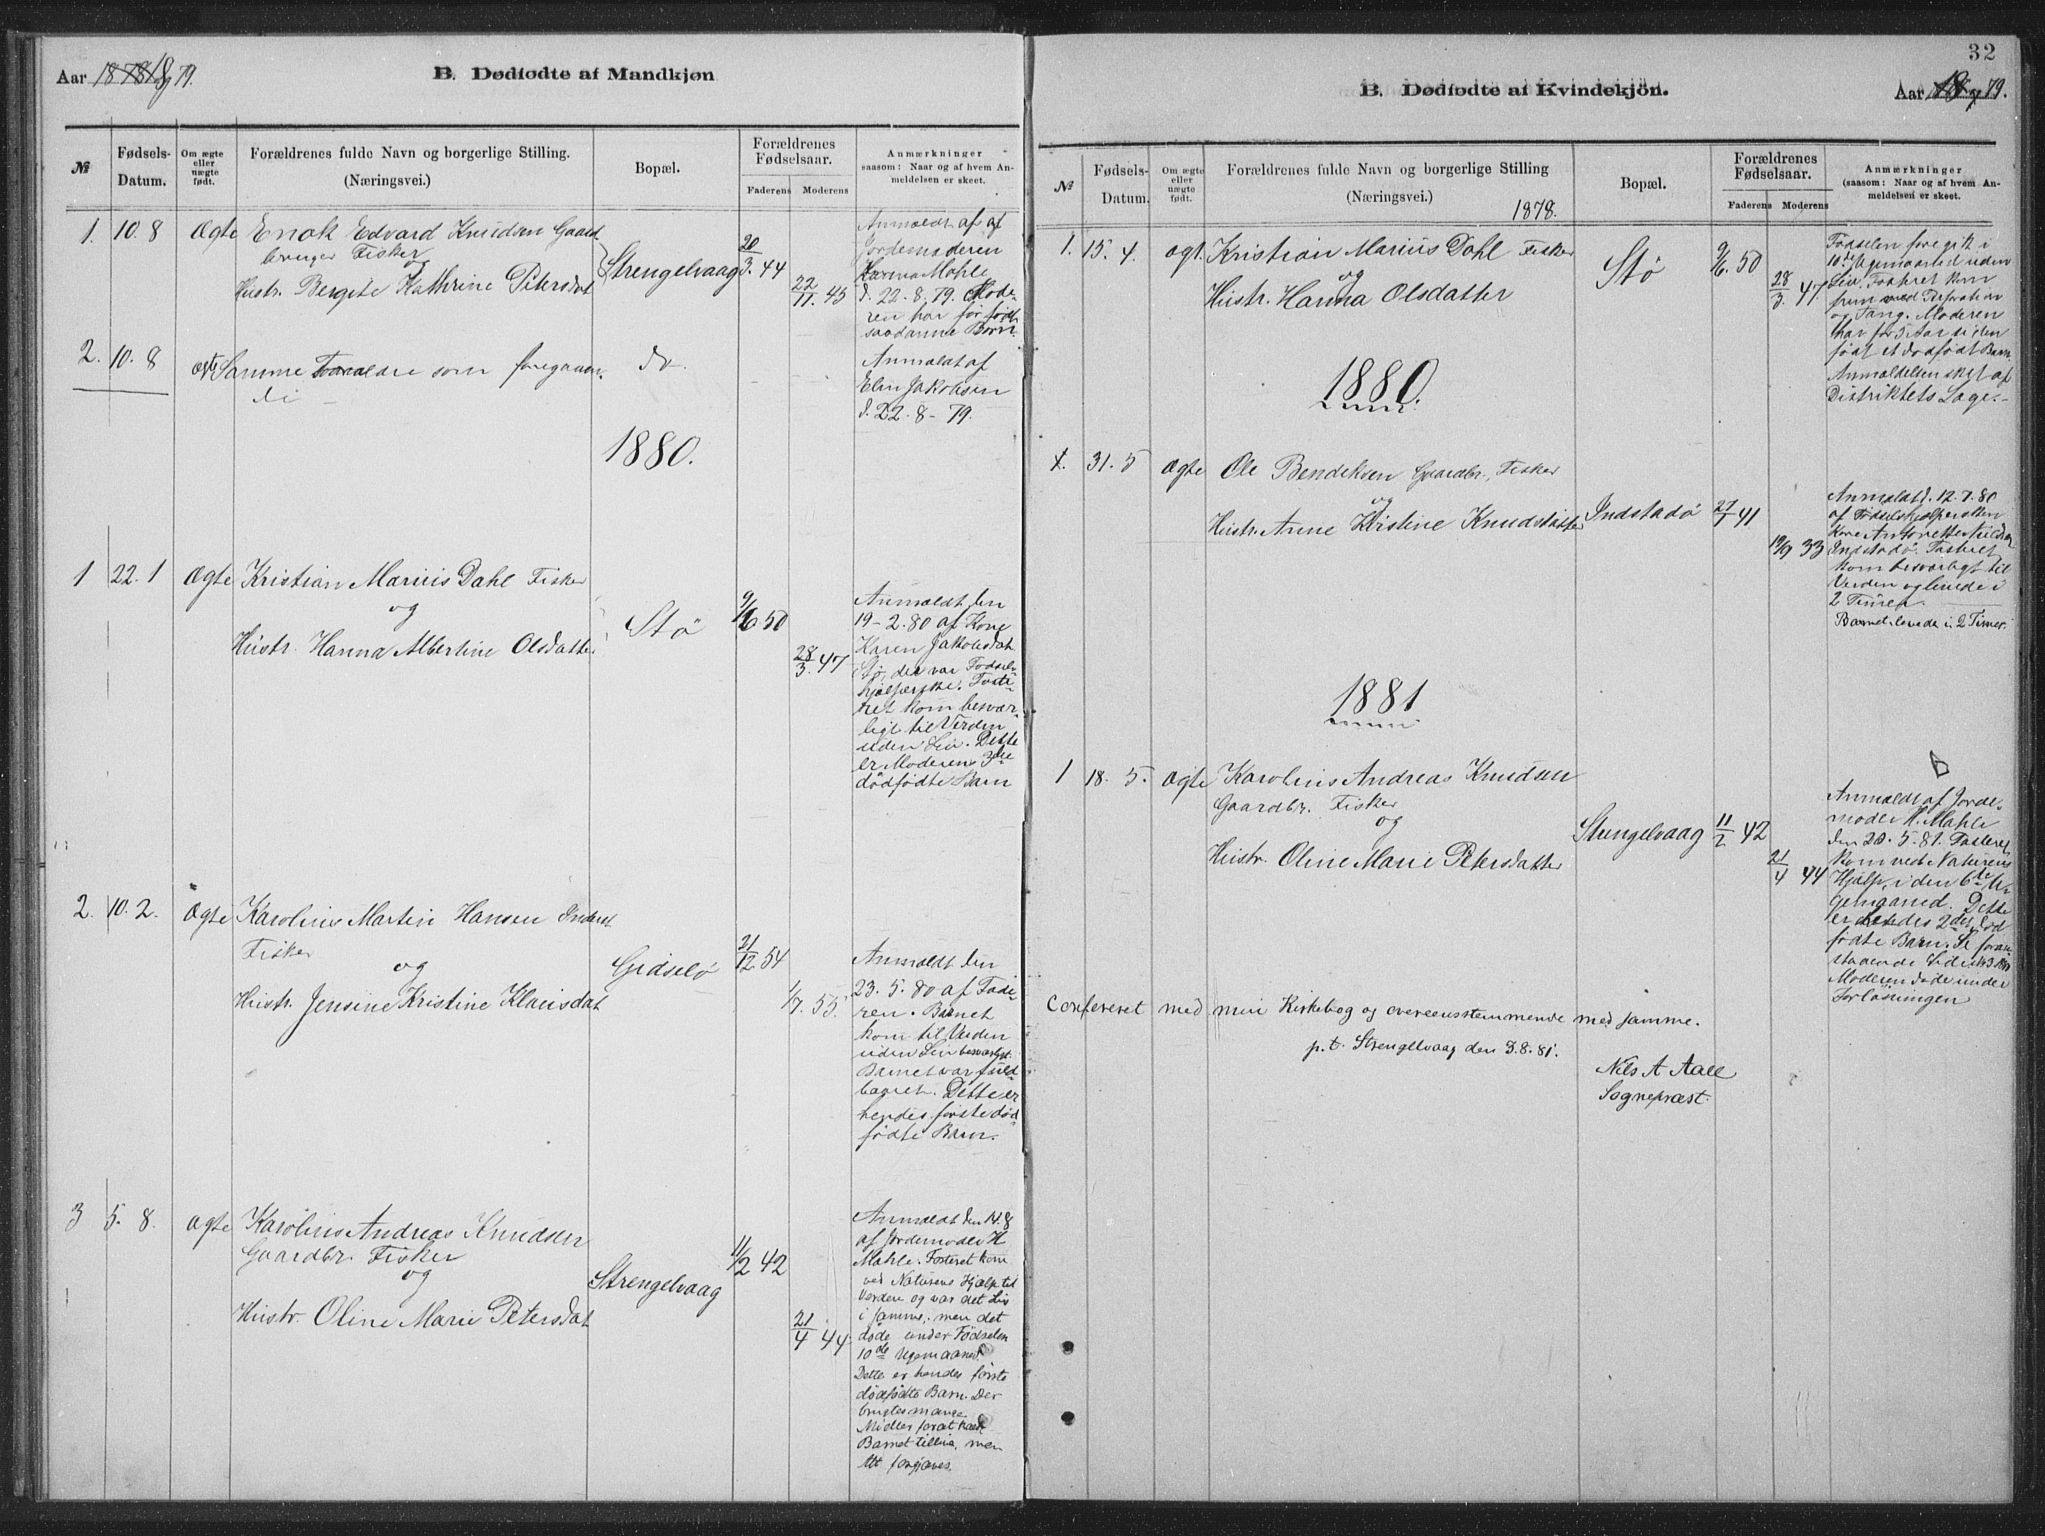 Aar 1878 og 79.
B. Dødfødte af Mandkjøn
№
Fødsels-
Datum.
Om ægte
eller
uægte
født.
Forældrenes fulde Navn og borgerlige Stilling.
(Næringsvei.)
Bopæl.
Forældrenes
Fødselsaar.
Faderens
Moderens
Anmærkninger
(saasom: Naar og af hvem An-
meldelsen er skeet.
1. 10. 8 Ægte Enok Edvard Knudsen Gaard
bruger Fisker
og
Hustr. Bergite Kathrine Petersdat
Strengelvaag
20/3. 44
22/11. 43
Anmeldt af af
Jordemoderen
Mahle
d. 22. 8. 79. Mode-
ren har før født
saadanne Børn.
2. 10. 8 Ægte Samme Forældre som foregaaen-
de
do.
Anmeldt af
Jakobsen
d. 22. 8 - 79.
1880.
1 22. 1 Ægte Kristian Marius Dahl Fisker
og
Hustr. Hanna Albertine Olsdatter
Stø
9/6 50
28/3. 47
Anmeldt den
19 - 2. 80 af Kone
Karen Jakobsdat
Stø, der var Fødsels-
hjælperske. Foste-
ret kom besvær-
ligt til Verden
uden Liv. Dette
er Moderens 3die
dødfødte Barn
2. 10. 2. Ægte Karolius Martin Hansen Inderst
Fisker
og
Hustr. Jensine Kristine Klausdat
Gidselø
21/12 54
1/7. 55.
Anmeldt den
23. 5. 80 af Fade-
ren. Barnet
kom til Verden
uden Liv besværligt.
Barnet var fuld-
baaret. Dette er
hendes første død-
fødte Barn.
3 5. 8. Ægte Karolius Andreas Knudsen
Gaardbr. Fisker
og
Hustr. Oline Marie Petersdat
Strengelvaag
11/2 42
21/4 44
Anmeldt den 14. 8
af Jordemoder H
Mahle. Fosteret kom
ved Naturens Hjælp til
Verden og var det Liv
i samme, men det
døde under Fødselen
10de Ugemaaned.
Dette er hendes første
dødfødte Barn. Der
brugtes mange
Midler forat kalde
Barnet tillive, men
Alt forgjæves.
32
B. Dødfødte af Kvindekjön.
Aar 18 og 79.
№
Fødsels-
Datum.
Om ægte
eller
uægte
født.
Forældrenes fulde Navn og borgerlige Stilling
(Næringsvei.)
1878.
Bopæl.
Forældrenes
Fødselsaar.
Faderens
Moderens
Anmærkninger
(saasom: Naar og af hvem An-
meldelsen er skeet.
1. 15. 4. ægt. Kristian Marius Dahl Fisker
og
Hustr. Hanna Olsdatter
Stø
9/6. 50
28/3. 47.
Fødselen foregik i
10de Ugemaaned uden
Liv. Fosteret kom
frem med
og Tang. Moderen
har for 5 Aar siden
født et dødfødt Barn
Anmeldelsen sket af
Distriktets Læge.
1880.
1. 31. 5 Ægte Ole Bendiksen Gaardbr. Fisker
og
Hustr. Anne Kristine Knudsdatter
Indstadø
27/7 41
19/9 33
Anmeldt d. 12. 7. 80
af Fødselshjælpersken
Kone Antonette Nilsdat
Indstadø. Fosteret
kom besværligt til
Verden og levede i
2 Timer.
Barnet levede i 2 Timer.
1881
1 18. 5. Ægte Karolius Andreas Knudsen
Gaardbr. Fisker
og
Hustr. Oline Marie Petersdatter
Strengelvaag
11/2 42
21/4 44
Anmeldt af Jorde-
moder H. Mahle
den 20. 5. 81. Fosteret
kom ved Naturens
Hjælp, i den 6te U-
gemaaned. Dette
er hendes 2det død
fødte Barn. Se foran
staaende Side № 3.
Moderen døde under
Forløsningen
Confereret med min Kirkebog og overeensstemmende med samme.
p. t. Strengelvaag den 3. 8. 81.
Nils A Aall
Sognepræst.